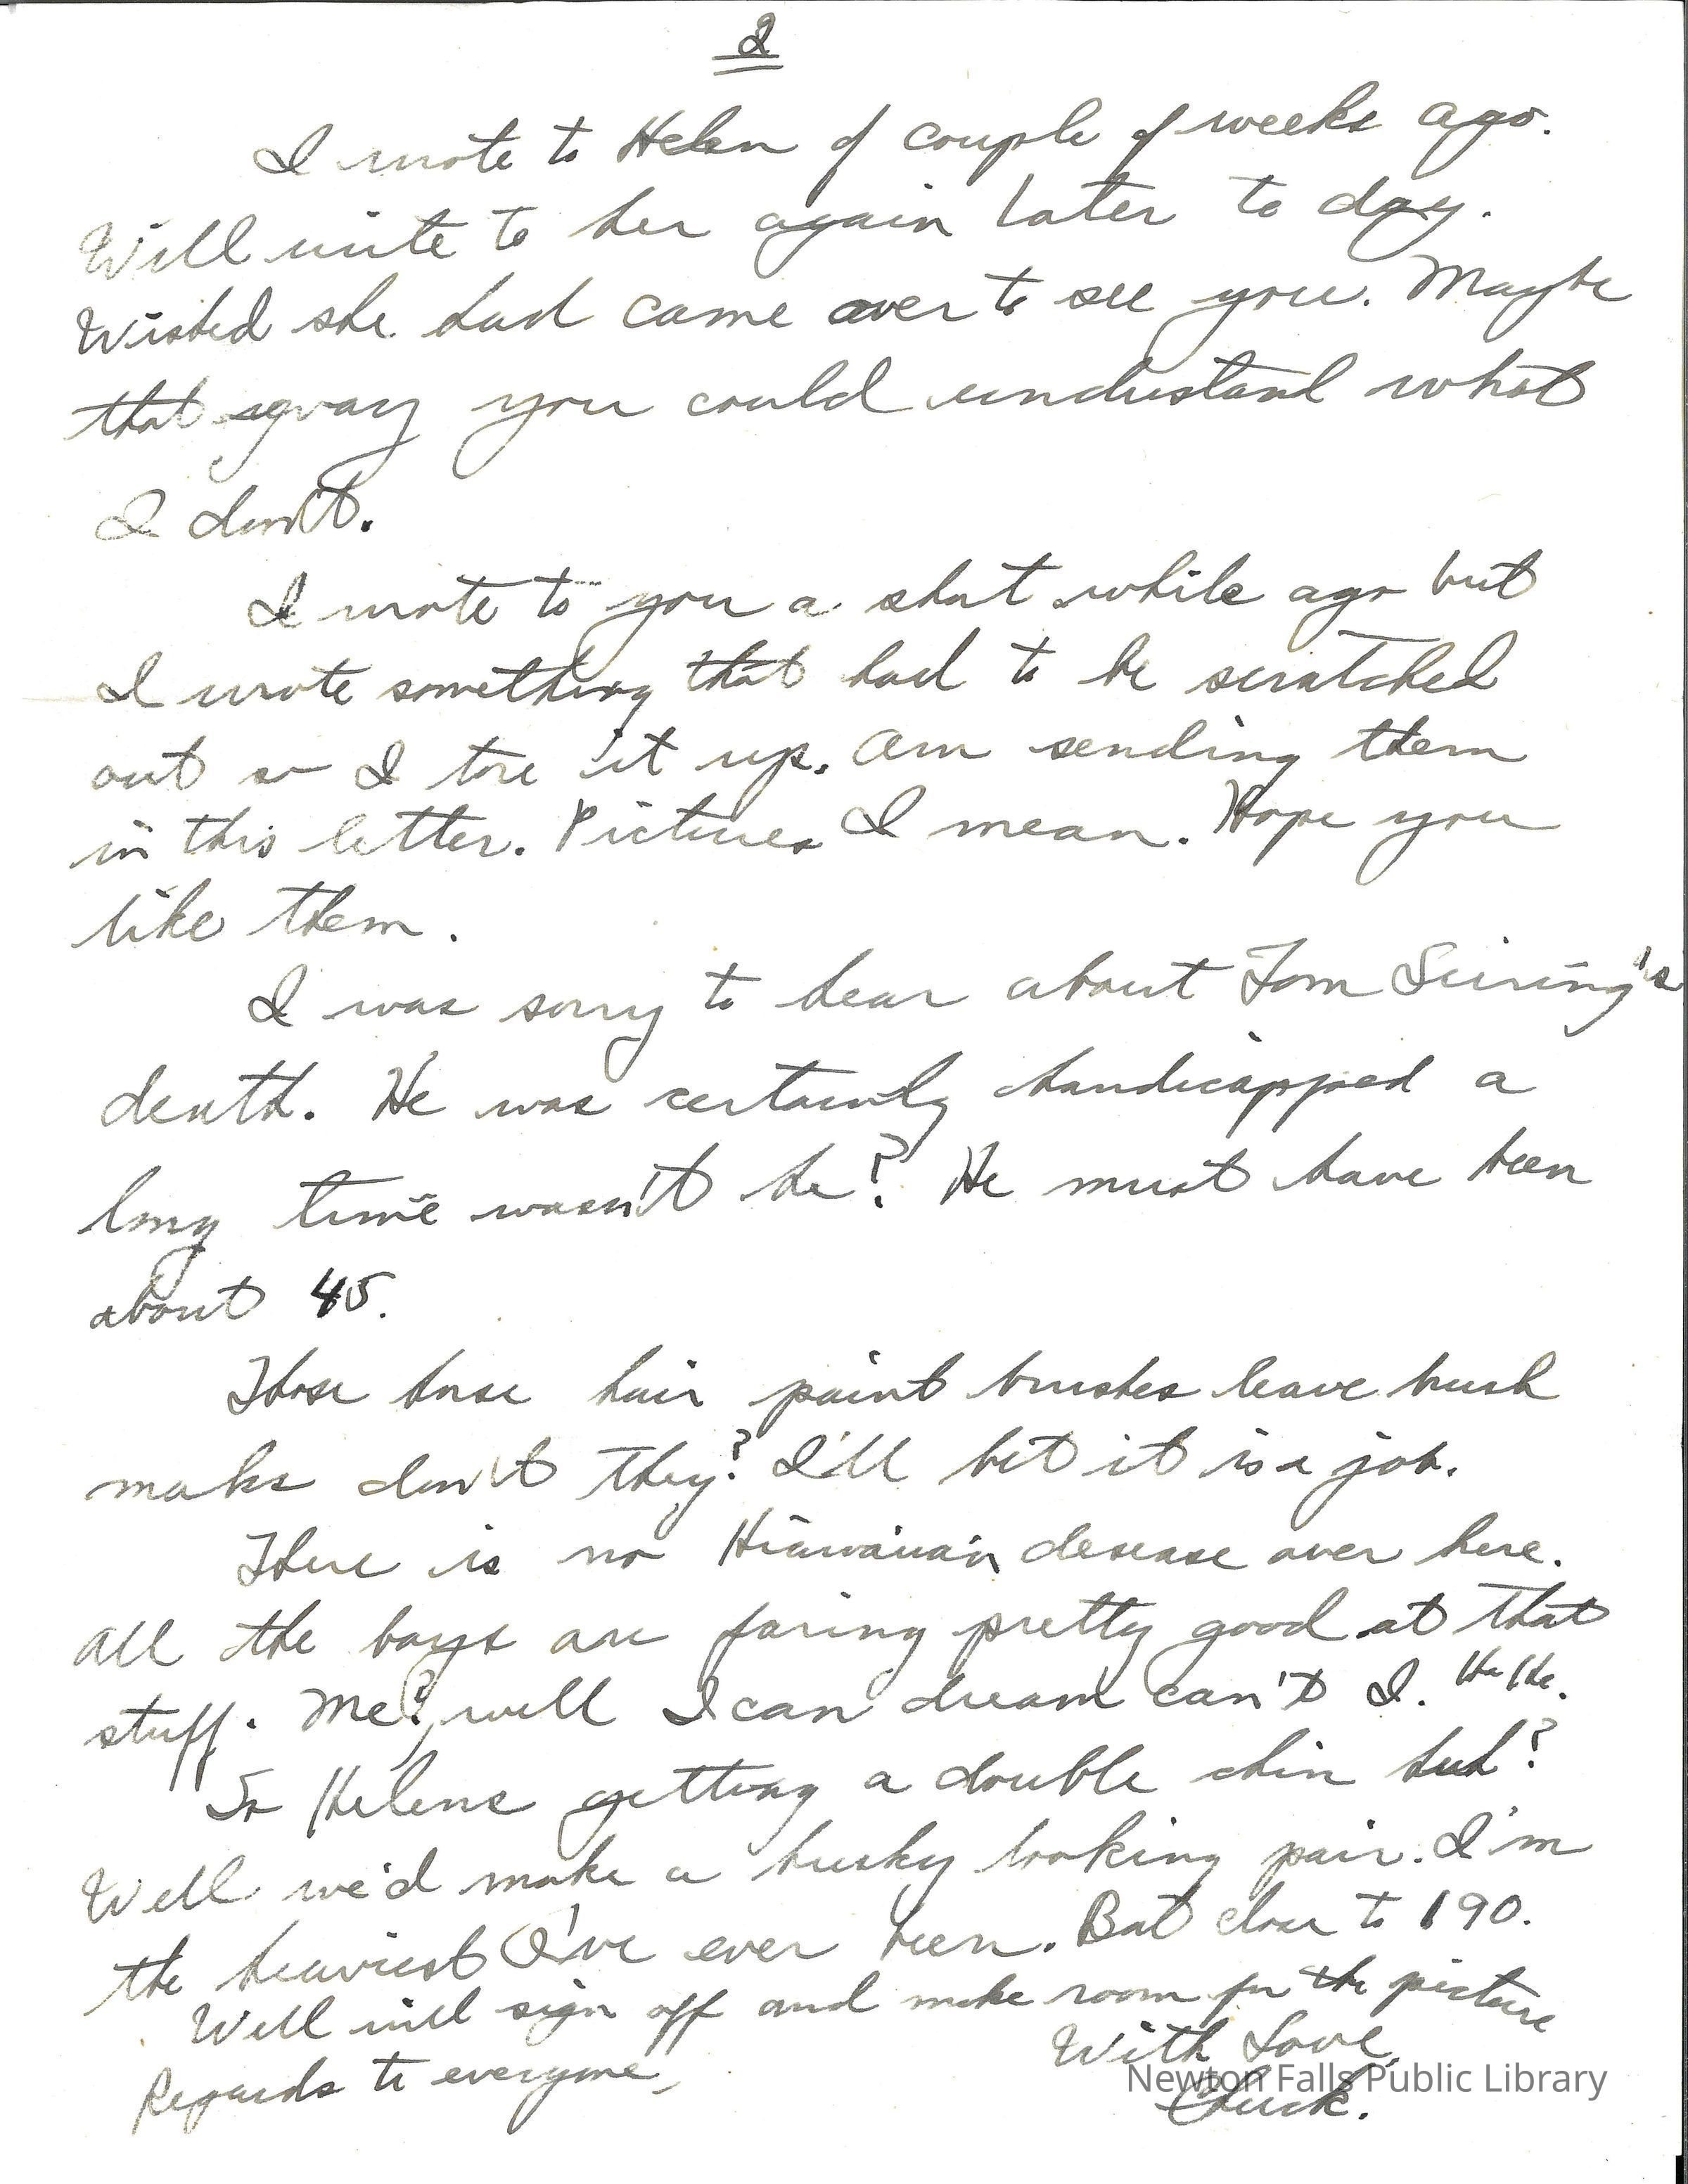 2
I wrote to Helen of couple of weeks ago.
Will write to her again later to day.
Wished she had came over to see you. Maybe
that way you could understand what
I don't.
I wrote to you a short while ago but
I wrote something that had to be scratched
out so I tore it up. Am sending them
in this letter. Pictures I mean. Hope you
like them.
I was sorry to hear about Tom
death. He was certainly handicapped a
long time wasn't he? He must have been
about 45.
Those horse hair paint brushes leave brush
marks don't they? I'll bet it is a job.
There is no Hiawaiian desease over here.
All the boys are faring pretty good at that
stuff. Me?, well I can dream can't I. He He.
So Helens getting a double chin huh?
Well we'd make a husky looking pair. I'm
the heaviest I've ever been. Bat close to 190.
Well will sign off and make room for the picture
Regards to everyone,
With Love,
Chuck.
Newton Falls Public Library